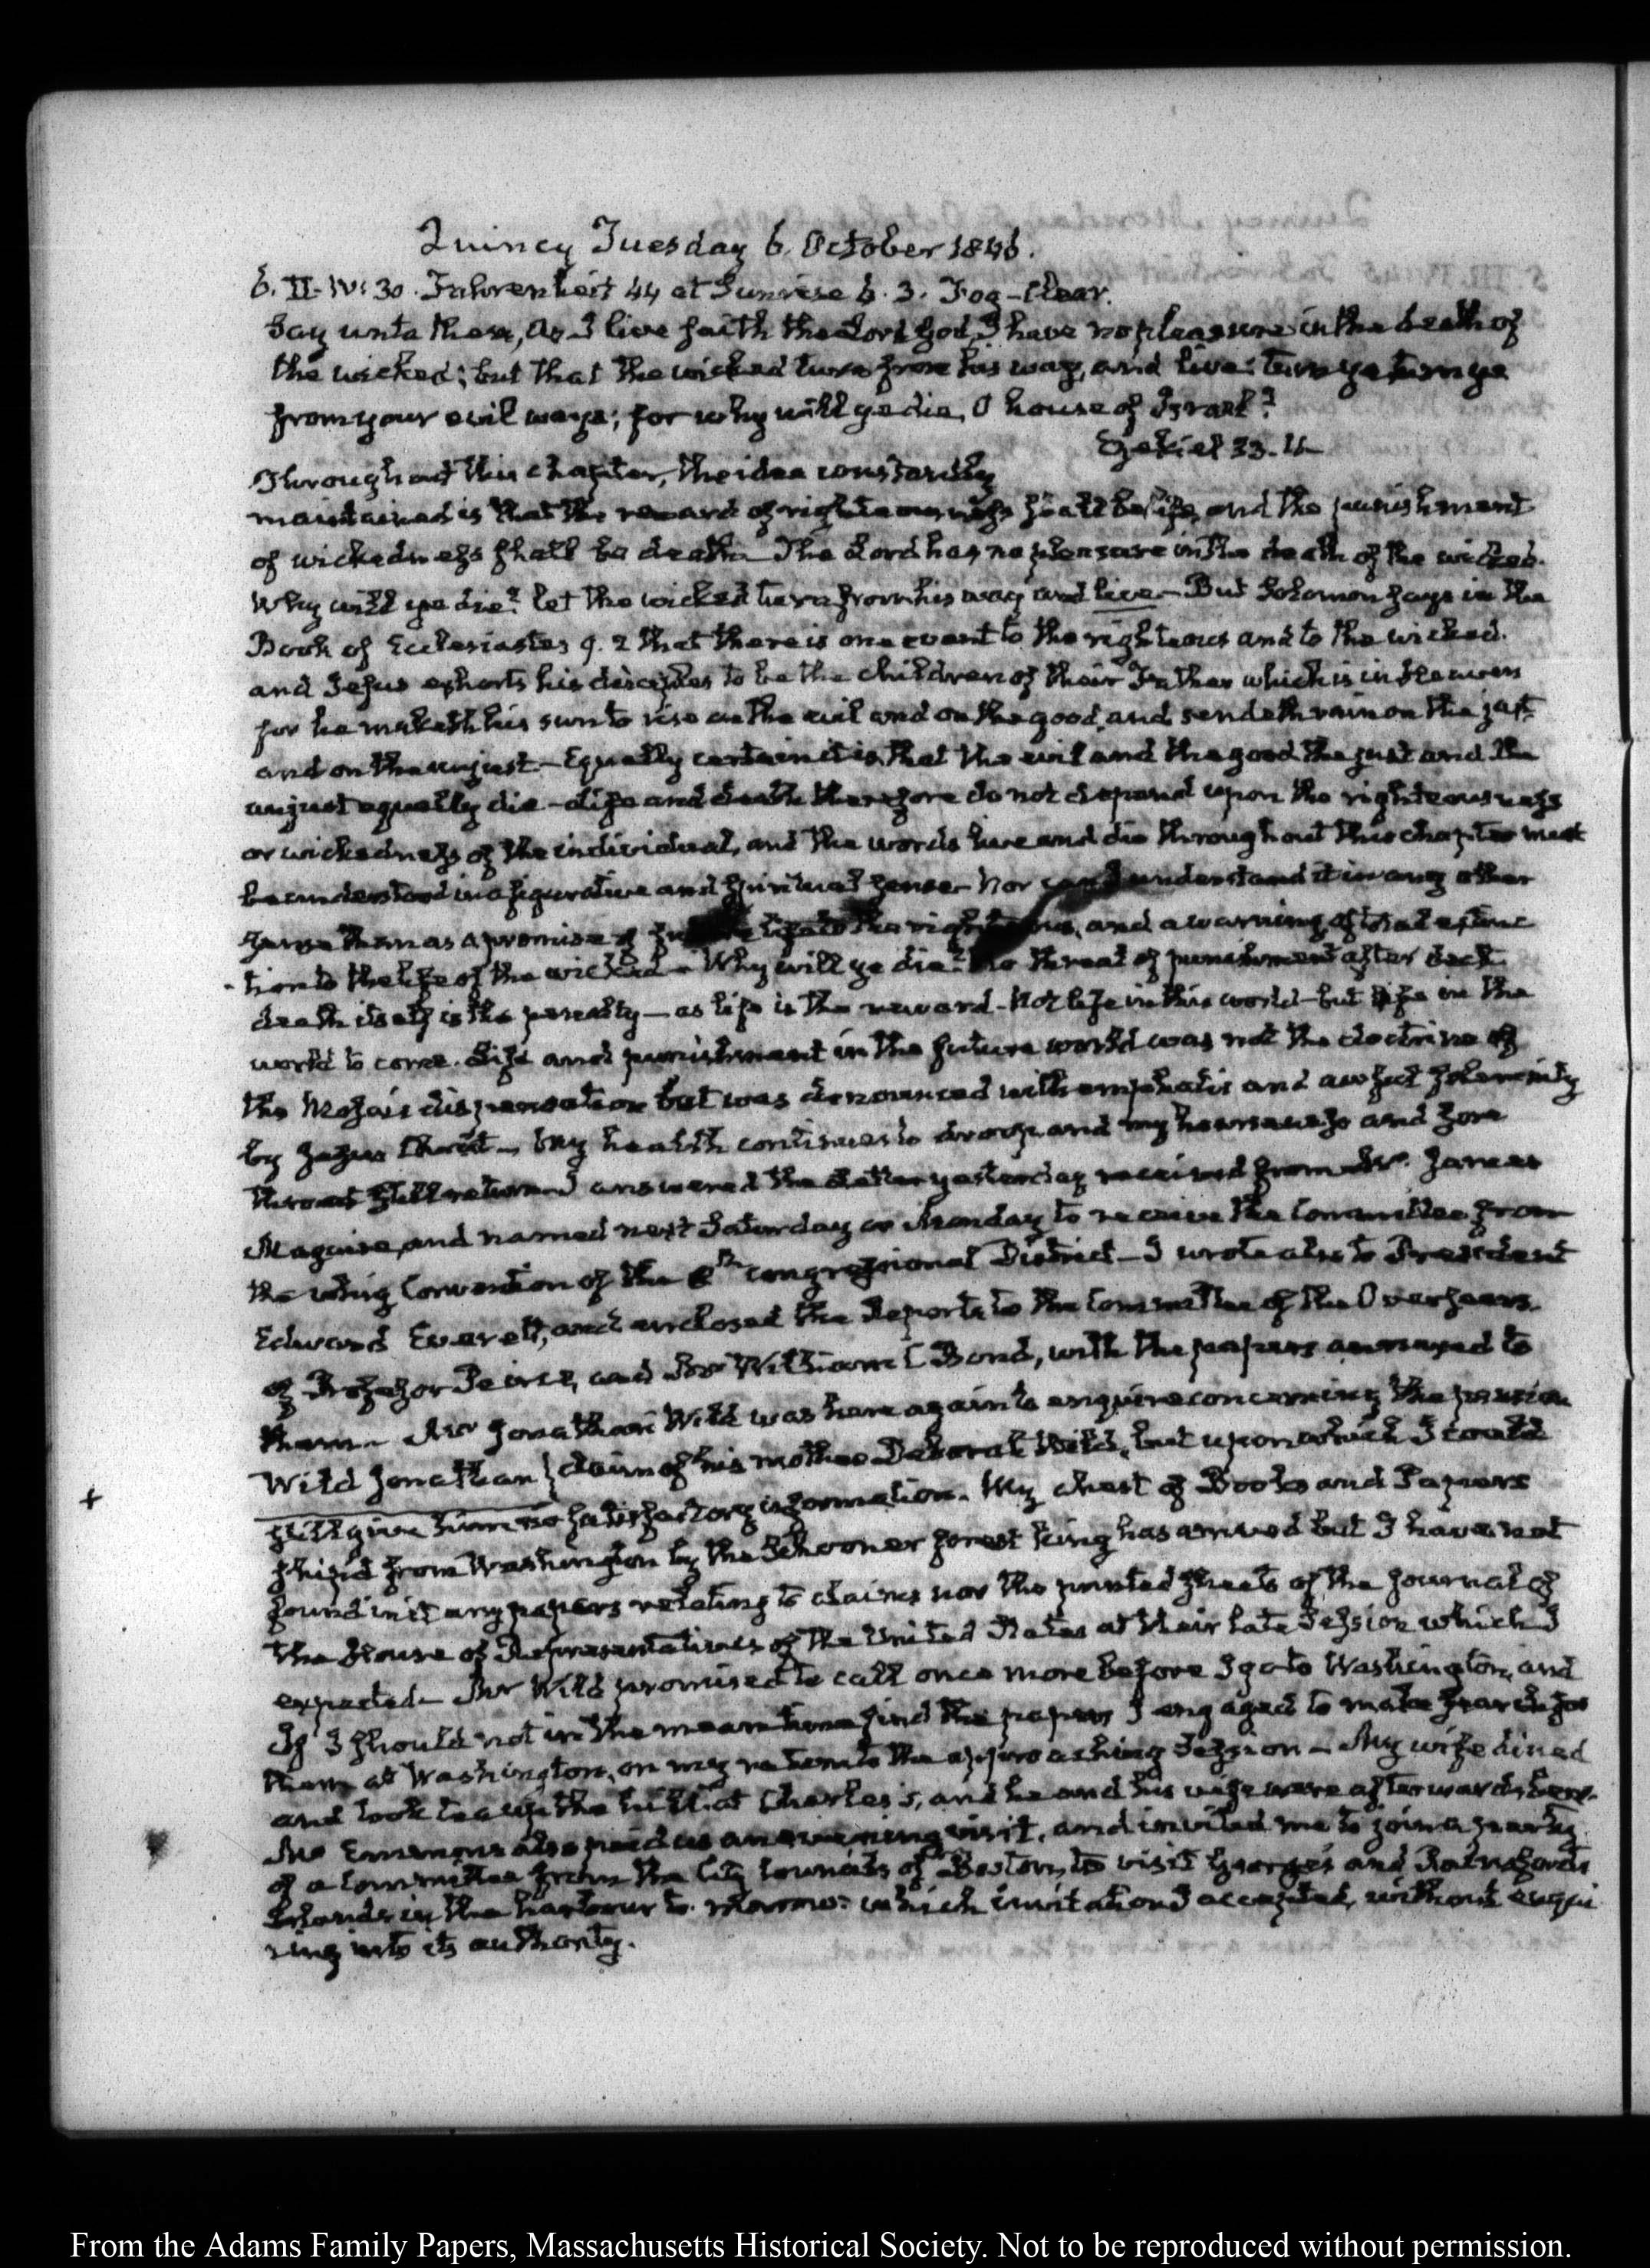 Quincy Tuesday 6. October 1846.
6. II. IV:30. Fahrenheit 44 at Sunrise 6. 3. Fog - Clear.
Say unto them, As I live saith the Lord God, I have no pleasure in the death of
the wicked; but that the wicked turn from his way, and live: turn ye turn ye
from your evil ways; for why will ye die, O house of Israel?
Ezekiel 33. 11
Throughout this chapter, the idea constantly
maintained is that the reward of righteousness shall be life, and the punishment
of wickedness shall be death. The Lord has no pleasure in the death of the wicked.
Why will ye die? let the wicked turn from his way and live - But Solomon says in the
Book of Ecclesiastes 9. 2 that there is one event to the righteous and to the wicked.
and Jesus exhorts his disciples to be the children of their Father which is in Heaven
for he maketh his sun to rise on the evil and on the good, and sendeth rain on the just
and on the unjust - Equally certain it is that the evil and the good the just and the
unjust equally die - life and death therefore do not depend upon the righteousness
or wickedness of the individual, and the words live and die throughout this chapter must
be understood in a figurative and spiritual sense - Nor can I understand it in any other
sense than as a promise of future life to the righteous, and a warning of total extinc
-tion to the life of the wicked - Why will ye die? No threat of punishment after death
death itself is the penalty - as life is the reward - Not life in this world - but life in the
world to come. Life and punishment in the future world was not the doctrine of
the Mosaic dispensation but was denounced with emphatic and awful solemnity
by Jesus Christ - My health continues to droop and my hoarseness and sore
throat still return. I answered the Letter yesterday received from Mr. James
Maguire, and named next Saturday or Monday to receive the Committee from
the whig Convention of the 8th congressional District - I wrote also to President
Edward Everett, and enclosed the Reports to the Committee of the Overseers
of Professor Peirce, and Mr William C Bond, with the papers annexed to
them - Mr Jonathan Wild was here again to enquire concerning the pension
Wild Jonathan } claim of his mother Deborah Wild, but upon which I could
still give him no satisfactory information. My chest of Books and Papers
ship'd from Washington by the Schooner Forest King has arrived but I have not
found in it any papers relating to claims nor the printed sheets of the Journal of
the House of Representatives of the United States at their late Session which I
expected - Mr Wild promised to call once more before I go to Washington, and
If I should not in the mean time find the papers I engaged to make search for
them at Washington, on my return to the approaching Session - My wife dined
and took tea up the hill at Charles's, and he and his wife were afterwards here.
Mr Emmons also paid us an evening visit, and invited me to join a party
of a Committee from the City Councils of Boston, to visit George's and Rainsford's
Islands in the harbour to morrow: which invitation I accepted, without enqui
ring into its authority.
+
From the Adams Family Papers, Massachusetts Historical Society. Not to be reproduced without permission.